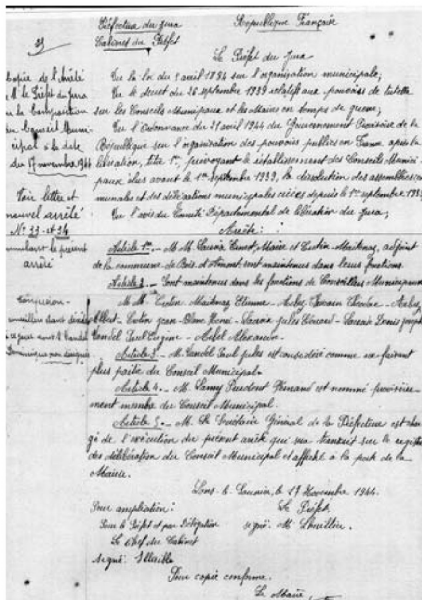 Préfecture du Jura
République Française
Cabinet du Préfet
Le Préfet du Jura
Copie de l'Arrêté
de M. le Préfet du Jura
sur la Composition
du Conseil Muni-
cipal à la date
du 17 novembre 1944
Voir lettre et
nouvel arrêté
Nos 33 et 34
annulant le présent
arrêté
Vu la loi du 5 avril 1884 sur l'organisation municipale;
Vu le décret du 26 septembre 1939 relatif aux pouvoirs de tutelle
sur les Conseils Municipaux et les Maires en temps de guerre;
Vu l'Ordonnance du 21 avril 1944 du Gouvernement Provisoire de la
République sur l'organisation des pouvoirs publics en France après la
libération, titre 1er, prévoyant le rétablissement des Conseils Munici-
paux élus avant le 1er septembre 1939, la dissolution des assemblées com-
munales et des délégations municipales créées depuis le 1er septembre 1939
Vu l'avis du Comité Départemental de libération du Jura;
Arrête:
Article 1er.- M M. Maire et adjoint
de la commune de Bois d'Amont, sont maintenus dans leurs fonctions.
Article 2.- Sont maintenus dans les fonctions de Conseillers Municipaux
M M.
Article 3.- M. Paul Jules est considéré comme ne faisant
plus partie du Conseil Municipal.
Article 4.- M. Lamy Fernand est nommé provisoire-
ment membre du Conseil Municipal.
Article 5.- M. le Secrétaire Général de la Préfecture est char-
gé de l'exécution du présent arrêté qui sera transcrit sur le registre
des délibérations du Conseil Municipal et affiché à la porte de la
Mairie.
Lons-le-Saunier, le 17 Novembre 1944.
Pour ampliation:
Le Préfet,
Pour le Préfet et par Délégation
signé: M.
Le Chef du Cabinet
signé:
Pour copie conforme.
Le Maire,